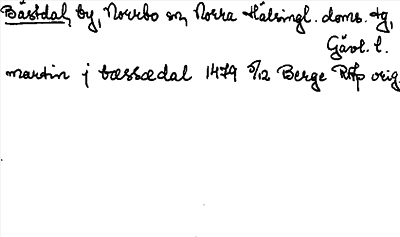 Bästdal, by, Norrbo sn, Norra Hälsingl. doms. tg,
Gävl. l.
martin j bæssædal 1479 5/12 Berge RAp orig.